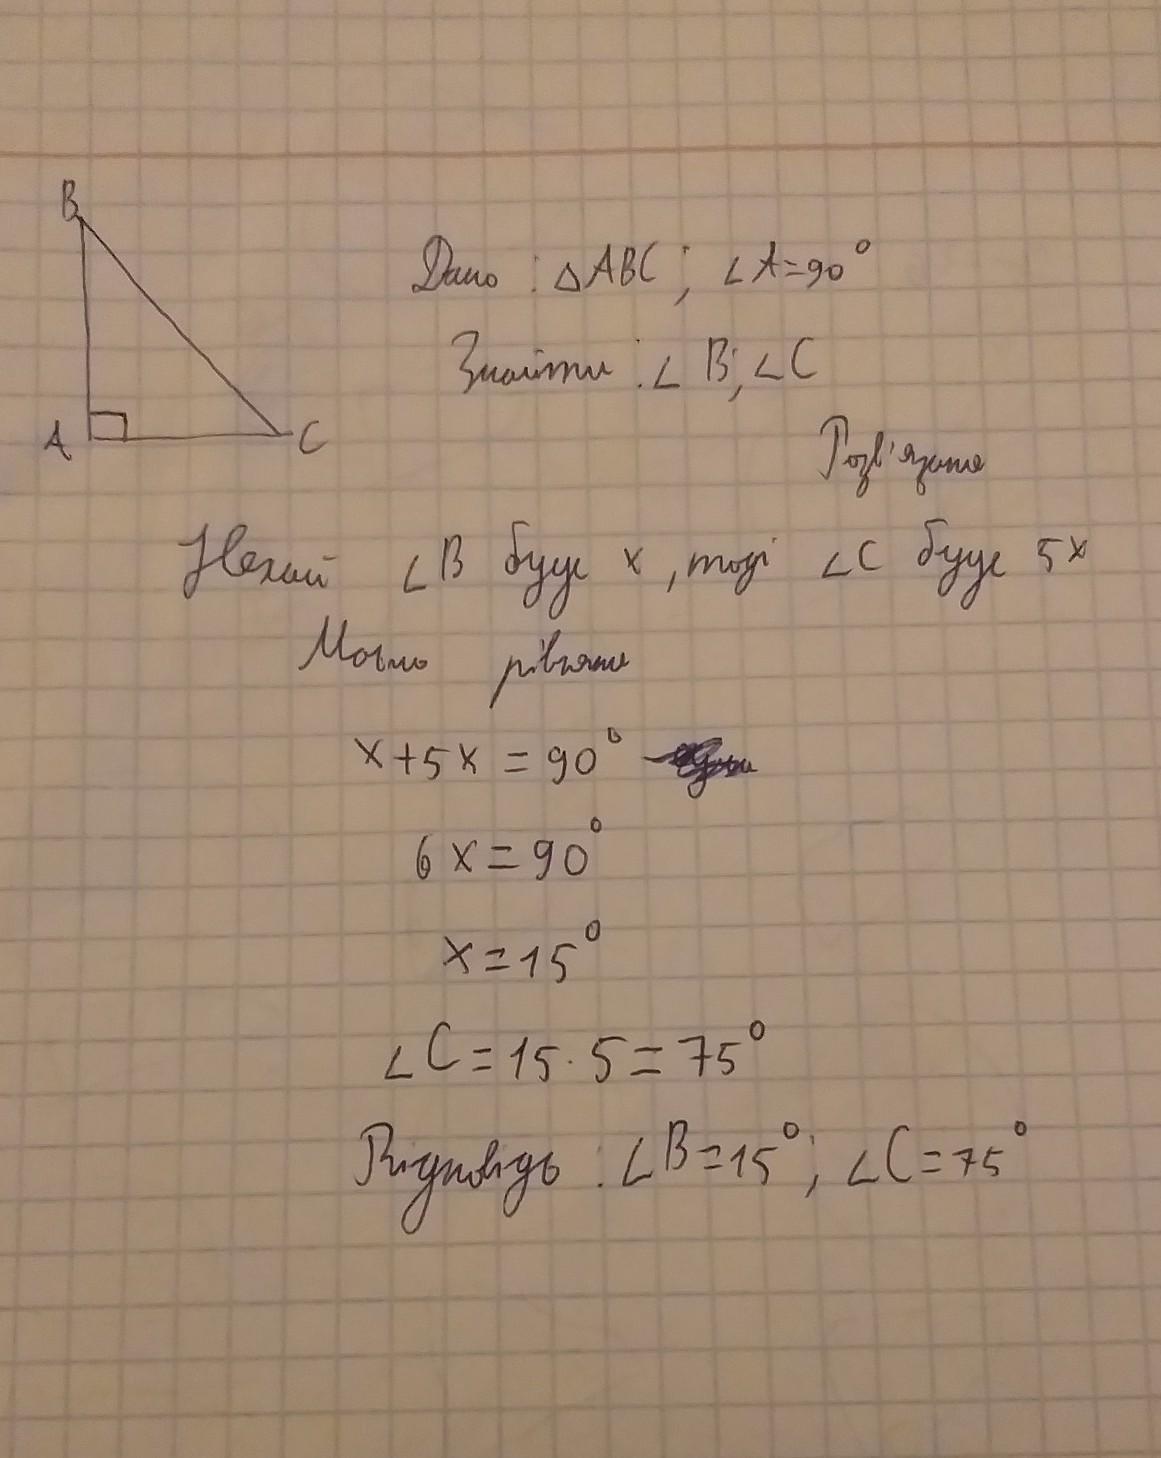 B
Дано : △ABC ; ∠A=90°
Знайти : ∠B; ∠C
A
C
Розв'язання
Нехай ∠B буде x, тоді ∠C буде 5x
Маємо рівняння
x+5x=90°
6x=90°
x=15°
∠C=15·5=75°
Відповідь : ∠B=15°; ∠C=75°